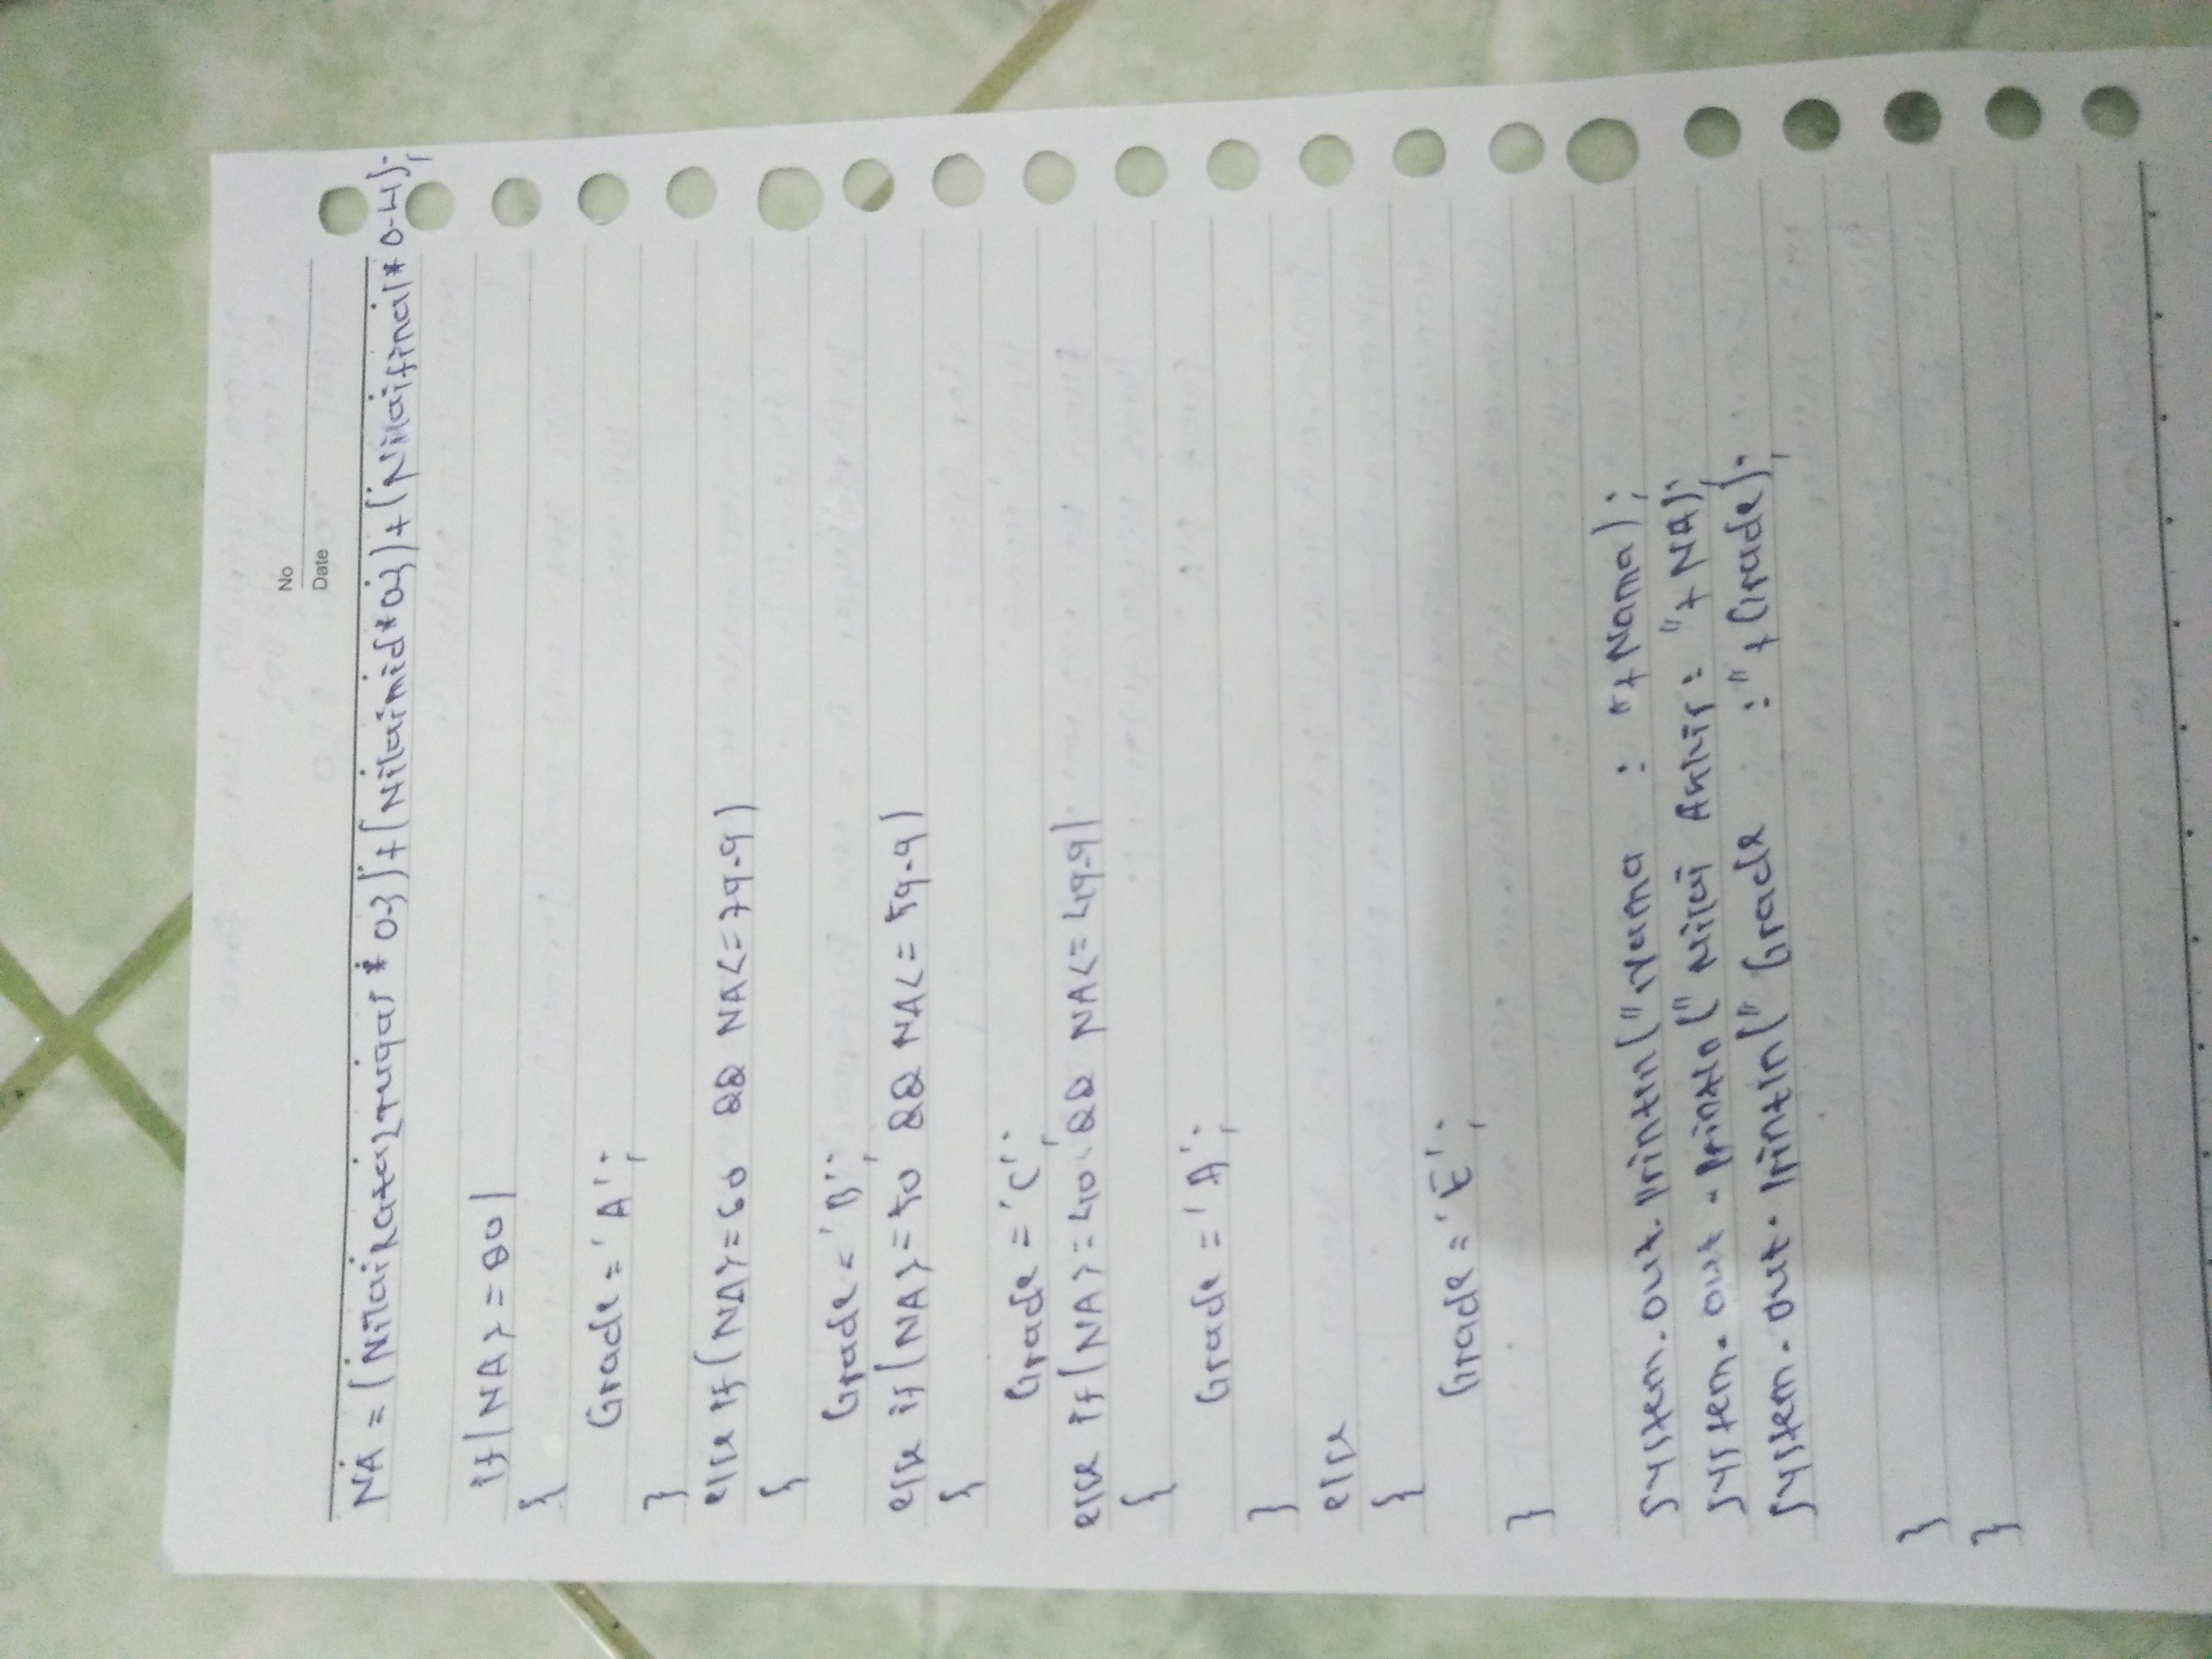 No
Date
NA = (NilaiRata2Tugas * 0.3) + (Nilaimid * 0.3) + (Nilaifinal * 0.4);
if (NA >= 80)
{
Grade = 'A';
}
else if (NA >= 60 && NA <= 79.9)
{
Grade = 'B';
else if (NA >= 50 && NA <= 59.9)
{
Grade = 'C';
else if (NA >= 40 && NA <= 49.9)
{
Grade = 'A';
}
else
{
Grade = 'E';
}
System.out.println("Nama : "+Nama);
System.out.println("Nilai Akhir : "+NA);
System.out.println("Grade :"+Grade);
}
}